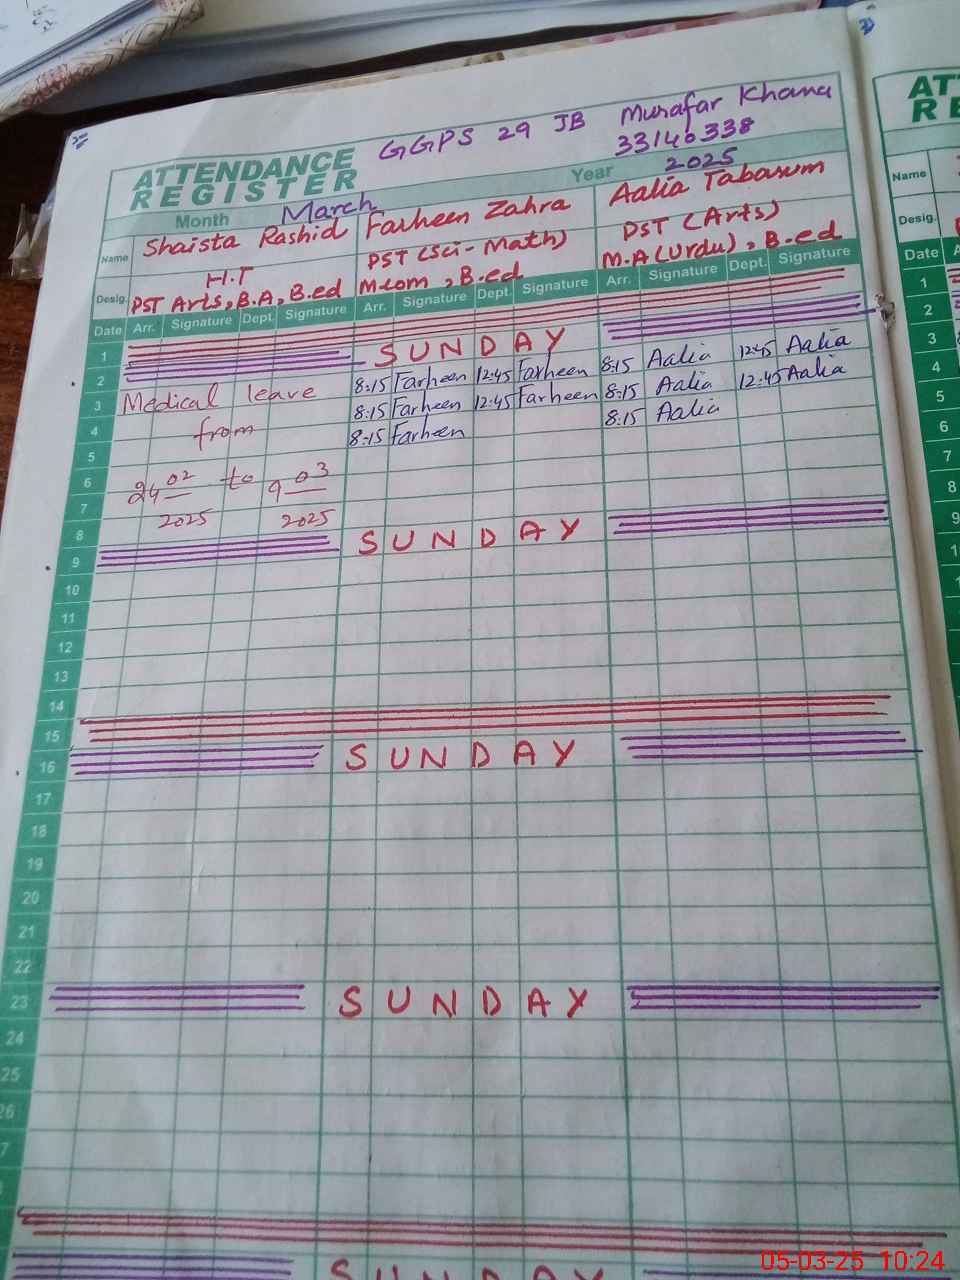 GGPS 29 JB Muzafar Khana
33140338
ATTENDANCE
REGISTER
Month March Year 2025
Name Shaista Rashid Farheen Zahra Aalia Tabasum
H.T PST (Sci-Math) PST (Arts)
Desig. PST Arts, B.A, B.ed M.com, B.ed M.A (Urdu), B.ed
Date Arr. Signature Dept. Signature Arr. Signature Dept. Signature Arr. Signature Dept. Signature
1
2 SUNDAY
3 Medical leave 8:15 Farheen 12:45 Farheen 8:15 Aalia 12:45 Aalia
4 from 8:15 Farheen 12:45 Farheen 8:15 Aalia 12:45 Aalia
5 8:15 Farheen 8:15 Aalia
6 24 02 to 9 03
7 2025 2025
8
9 SUNDAY
10
11
12
13
14
15
16 SUNDAY
17
18
19
20
21
22
23 SUNDAY
24
25
26
7
SUNDAY
AT
RE
Name
Desig.
Date A
1
2
3
4
5
6
7
8
9
1
1
05-03-25 10:24